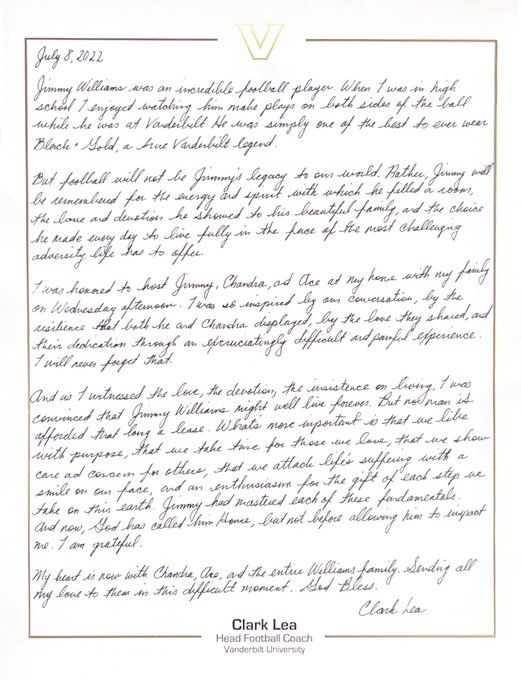 V
July 8, 2022
Jimmy Williams was an incredible football player. When I was in high
school I enjoyed watching him make plays on both sides of the ball
while he was at Vanderbilt. He was simply one of the best to ever wear
Black + Gold, a true Vanderbilt legend.
But football will not be Jimmy's legacy to our world. Rather, Jimmy will
be remembered for the energy and spirit with which he filled a room,
the love and devotion he showed to his beautiful family, and the choice
he made every day to live fully in the face of the most challenging
adversity life has to offer.
I was honored to host Jimmy, Chandra, ad Ace at my home with my family
on Wednesday afternoon. I was so inspired by our conversation, by the
resilience that both he and Chandra displayed, by the love they shared, and
their dedication through an excruciatingly difficult and painful experience.
I will never forget that.
And as I witnessed the love, the devotion, the insistence on living, I was
convinced that Jimmy Williams might well live forever. But no man is
afforded that long a lease. What's more important is that we live
with purpose, that we take time for those we love, that we show
care ad concern for others, that we attack life's suffering with a
smile on our face, and an enthusiasm for the gift of each step we
take on this earth. Jimmy had mastered each of these fundamentals.
And now, God has called him Home, but not before allowing him to impact
me. I am grateful.
My heart is now with Chandra, Ace, and the entire Williams family. Sending all
my love to them in this difficult moment. God Bless.
Clark Lea
Clark Lea
Head Football Coach
Vanderbilt University